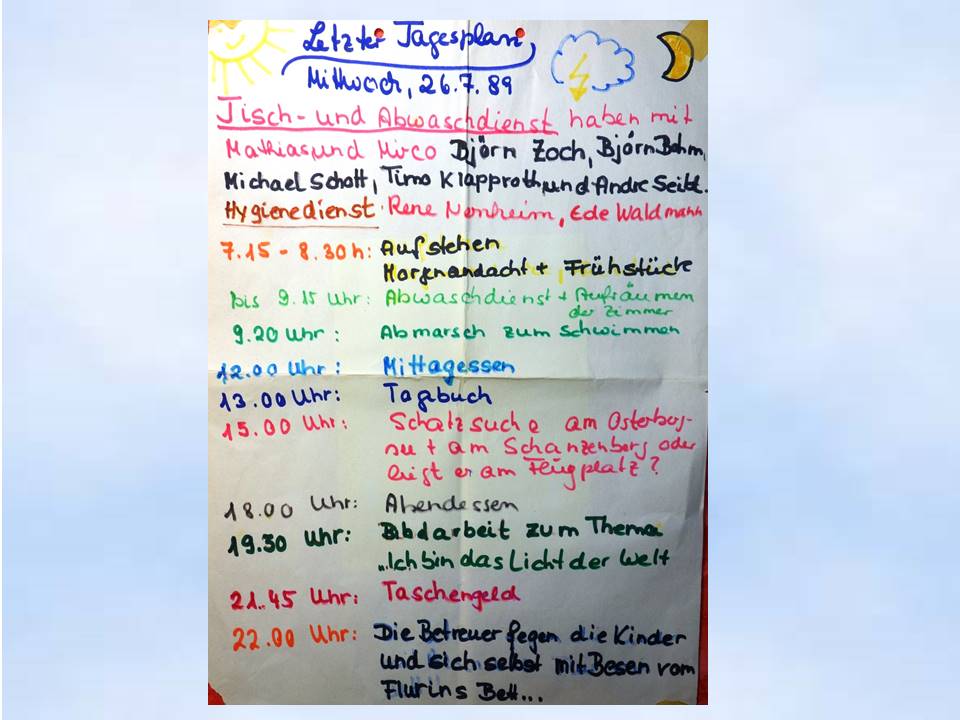 Letzter Tagesplan
Mittwoch, 26.7.89
Tisch- und Abwaschdienst haben mit
Mathias und Mirco Björn Zoch, Björn Bohm,
Michael Schott, Timo Klapproth und Andre Seibt.
Hygienedienst: Rene Nonheim, Ede Waldmann
7.15 - 8.30 h: Aufstehen
Morgenandacht + Frühstück
bis 9.15 Uhr: Abwaschdienst + Aufräumen
der Zimmer
9.20 Uhr: Abmarsch zum Schwimmen
12.00 Uhr: Mittagessen
13.00 Uhr: Tagebuch
15.00 Uhr: Schatzsuche am Osterberg-
am Schanzenberg oder
liegt er am Flugplatz?
18.00 Uhr: Abendessen
19.30 Uhr: Bibelarbeit zum Thema
"Ich bin das Licht der Welt
21.45 Uhr: Taschengeld
22.00 Uhr: Die Betreuer fegen die Kinder
und sich selbst mit Besen vom
Flur ins Bett...